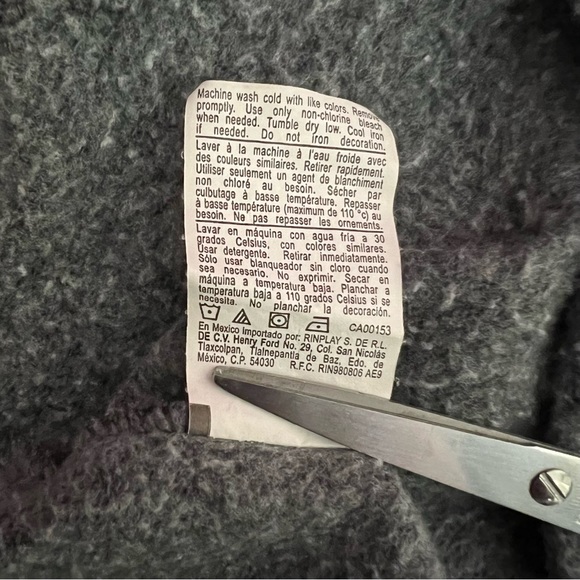 Machine wash cold with like colors. Remove
promptly. Use only non-chlorine bleach
when needed. Tumble dry low. Cool iron
if needed. Do not iron decoration.
Laver à la machine à l'eau froide avec
des couleurs similaires. Retirer rapidement.
Utiliser seulement un agent de blanchiment
non chloré au besoin. Sécher par
culbutage à basse température. Repasser
à basse température (maximum de 110 °c) au
besoin. Ne pas repasser les ornements.
Lavar en máquina con agua fria a 30
grados Celsius, con colores similares.
Usar detergente. Retirar inmediatamente.
Sólo usar blanqueador sin cloro cuando
sea necesario. No exprimir. Secar en
máquina a temperatura baja. Planchar a
temperatura baja a 110 grados Celsius si se
necesita. No planchar la decoración.
CA00153
En Mexico Importado por: RINPLAY S. DE R.L.
DE C.V. Henry Ford No. 29, Col. San Nicolás
Tlaxcolpan, Tlalnepantla de Baz, Edo. de
México, C.P. 54030 R.F.C. RIN980806 AE9